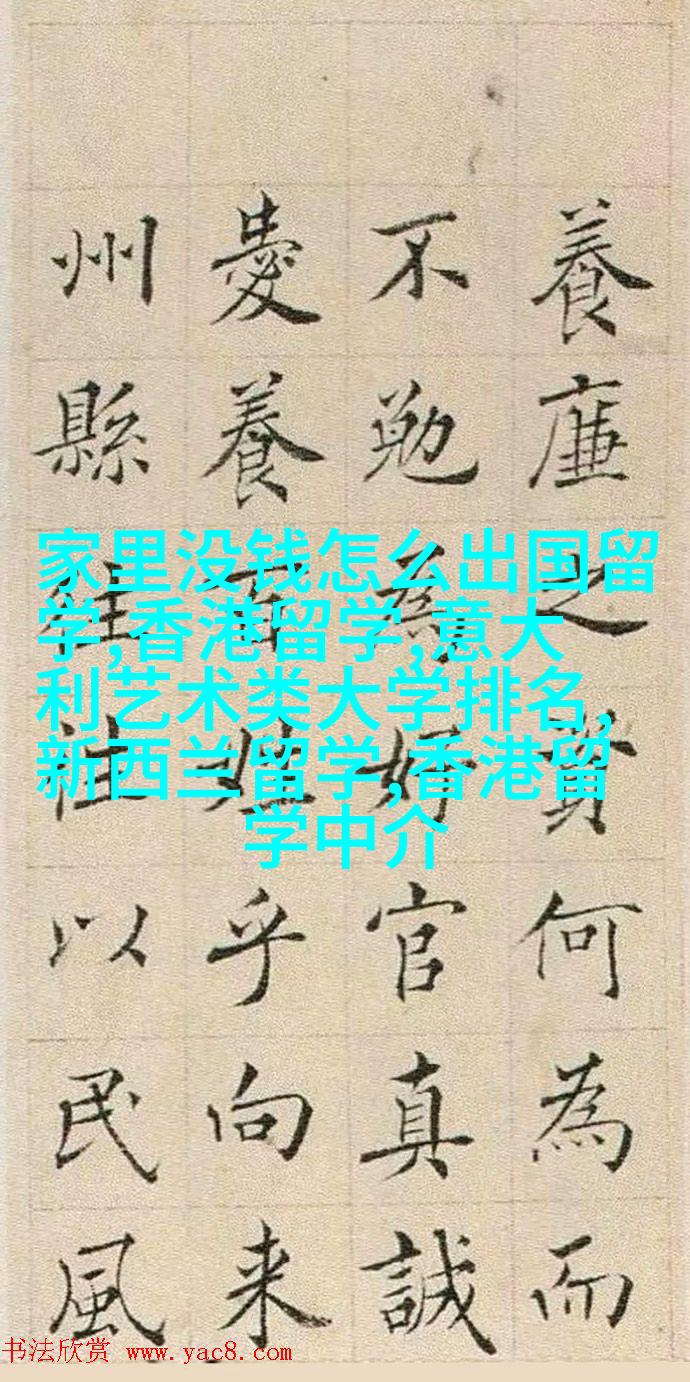 養廉之資何為而
不勉為好官真誠
愛養百姓乎向来
州縣往往以民風
家里没钱怎么出国留
学,香港留学,意大
利艺术类大学排名,
新西兰留学,香港留
学中介
书法欣赏 www.yac8.com